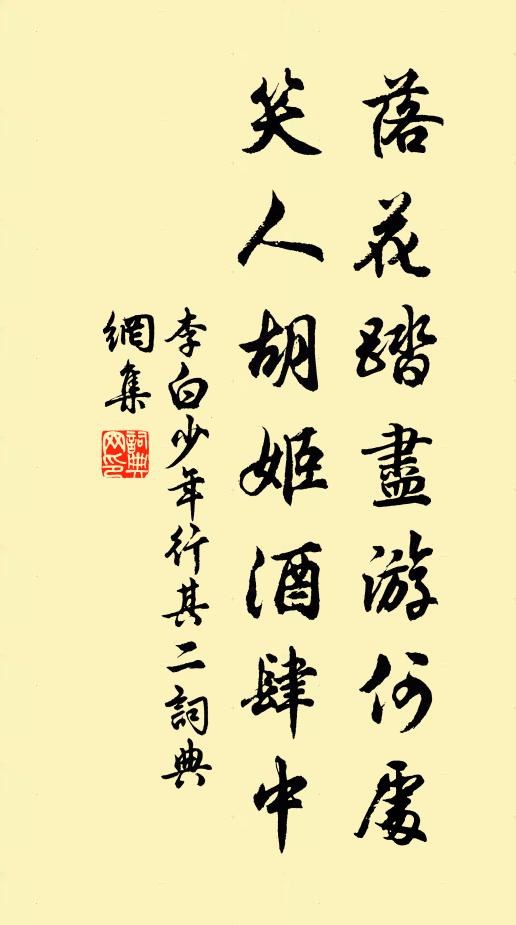 落花踏盡游何處
笑入胡姬酒肆中
李白少年行其二詞典
網集
詞典網印